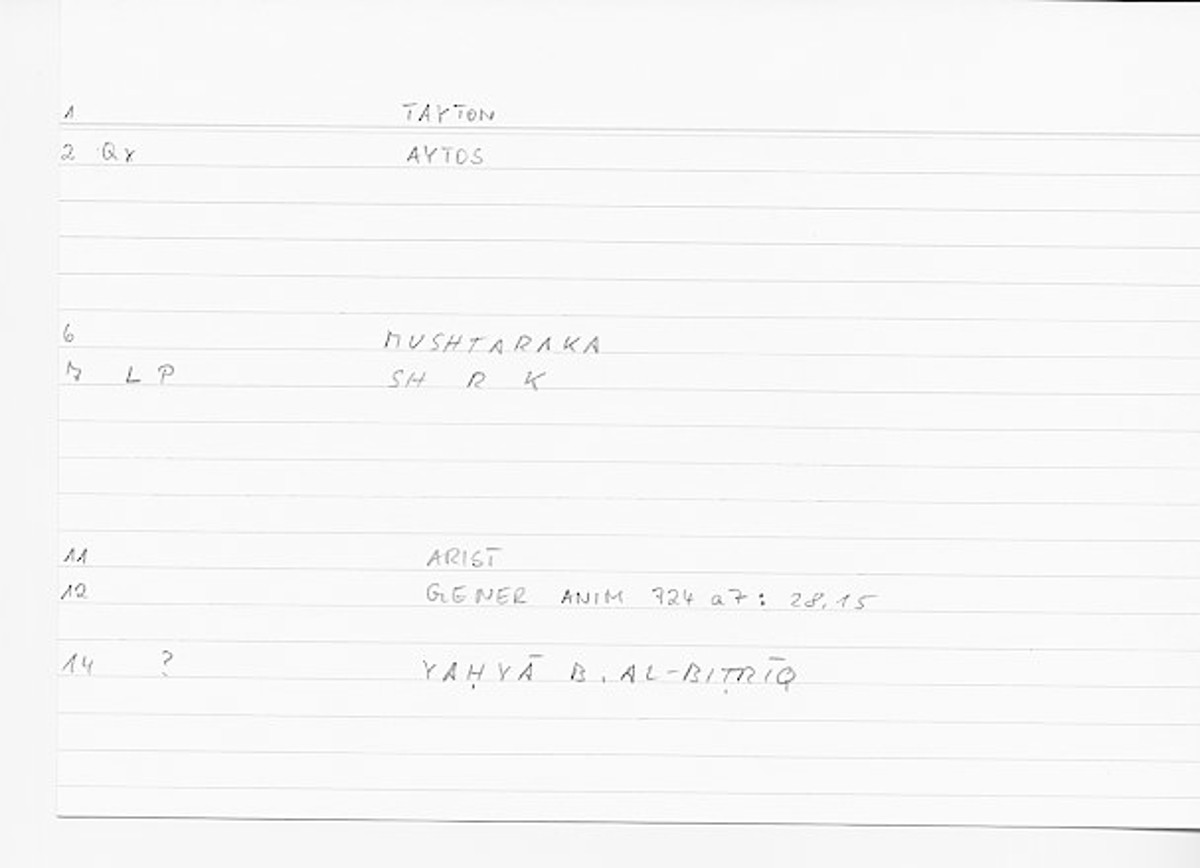 1 TAYTON
2 Qγ AYTOS
6 MUSHTARAKA
7 L P SH R K
11 ARIST
12 GENER ANIM 724 a7: 28,15
14 ? YAḤYĀ B. AL-BIṬRĪQ